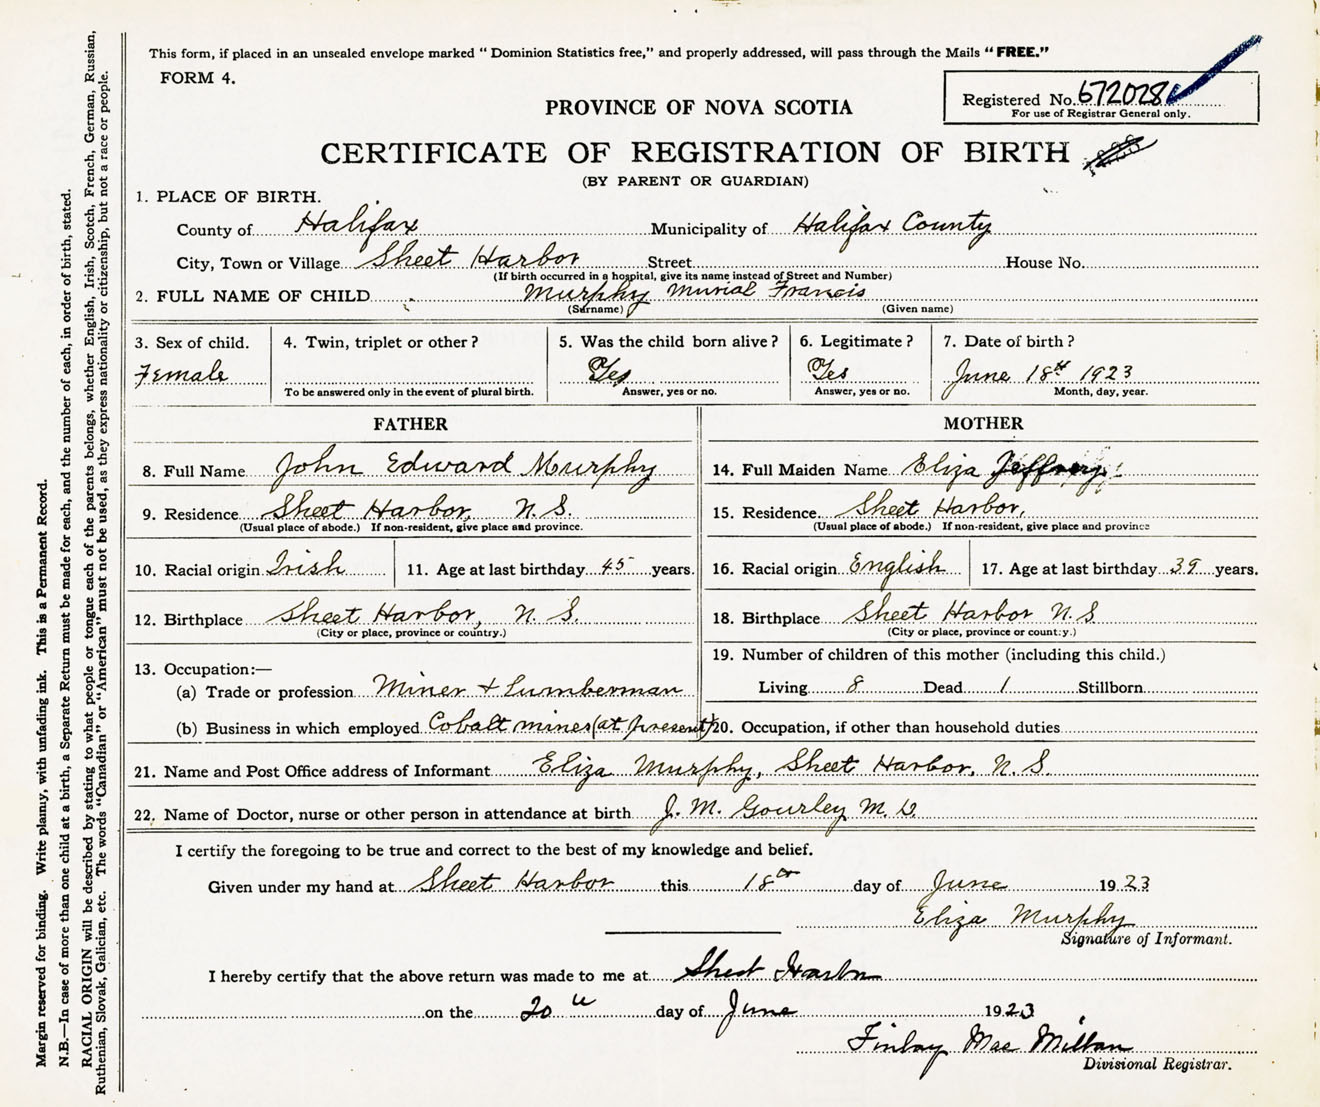 This form, if placed in an unsealed envelope marked " Dominion Statistics free," and properly addressed, will pass through the Mails " FREE."
FORM 4.
Registered No. 672028
For use of Registrar General only.
PROVINCE OF NOVA SCOTIA
CERTIFICATE OF REGISTRATION OF BIRTH
(BY PARENT OR GUARDIAN)
1. PLACE OF BIRTH.
County of Halifax Municipality of Halifax County
City, Town or Village Sheet Harbor Street House No.
(If birth occurred in a hospital, give its name instead of Street and Number)
2. FULL NAME OF CHILD Murphy Murial Francis
(Surname) (Given name)
3. Sex of child. 4. Twin, triplet or other ? 5. Was the child born alive ? 6. Legitimate ? 7. Date of birth ?
Female Yes Yes June 18th 1923
To be answered only in the event of plural birth. Answer, yes or no. Answer, yes or no. Month, day, year.
FATHER MOTHER
8. Full Name John Edward Murphy 14. Full Maiden Name Eliza Jeffrey
9. Residence Sheet Harbor, N.S. 15. Residence. Sheet Harbor,
(Usual place of abode.) If non-resident, give place and province. (Usual place of abode.) If non-resident, give place and province
10. Racial origin Irish 11. Age at last birthday 45 years. 16. Racial origin English 17. Age at last birthday 39 years.
12. Birthplace Sheet Harbor, N.S. 18. Birthplace Sheet Harbor N.S
(City or place, province or country.) (City or place, province or country.)
13. Occupation:— 19. Number of children of this mother (including this child.)
(a) Trade or profession Miner + Lumberman Living 8 Dead 1 Stillborn
(b) Business in which employed Cobalt mines (at present) 20. Occupation, if other than household duties
21. Name and Post Office address of Informant Eliza Murphy, Sheet Harbor, N.S.
22. Name of Doctor, nurse or other person in attendance at birth J. M. Gourley M.D.
I certify the foregoing to be true and correct to the best of my knowledge and belief.
Given under my hand at Sheet Harbor this 18th day of June 1923
Eliza Murphy
Signature of Informant.
I hereby certify that the above return was made to me at Sheet Harbor
on the 20th day of June 1923
Finlay MacMillan
Divisional Registrar.
Margin reserved for binding. Write plainly, with unfading ink. This is a Permanent Record.
N.B.—In case of more than one child at a birth, a Separate Return must be made for each, and the number of each, in order of birth, stated.
RACIAL ORIGIN will be described by stating to what people or tongue each of the parents belongs, whether English, Irish, Scotch, French, German, Russian,
Ruthenian, Slovak, Galician, etc. The words "Canadian" or "American" must not be used, as they express nationality or citizenship, but not a race or people.